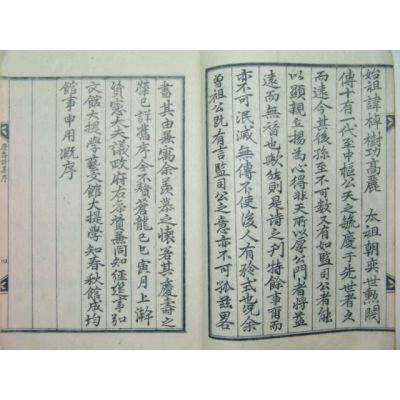 始祖諱棹樹功高麗 太祖朝奕世勲閥
傳十有一代至中樞公天之毓慶于先世者久
而遠今其後孫至不可數又有如監司公者能
以顯親立揚為心得非天所以厚公門者將益
遠而無替也歟然則是詩之刊特餘事爾而
亦不可泯滅無傳不使後人有矜式也況余
曾祖公既有言監司公之意亦不可孤玆畧
書其由兼寓余羨慕之懷若其慶壽之
榮已詳舊序余不贅蒼龍己巳寅月上澣
資憲大夫議政府右參贊兼同知經筵事弘
文館大提學藝文館大提學知春秋館成均
館事申用漑序
四